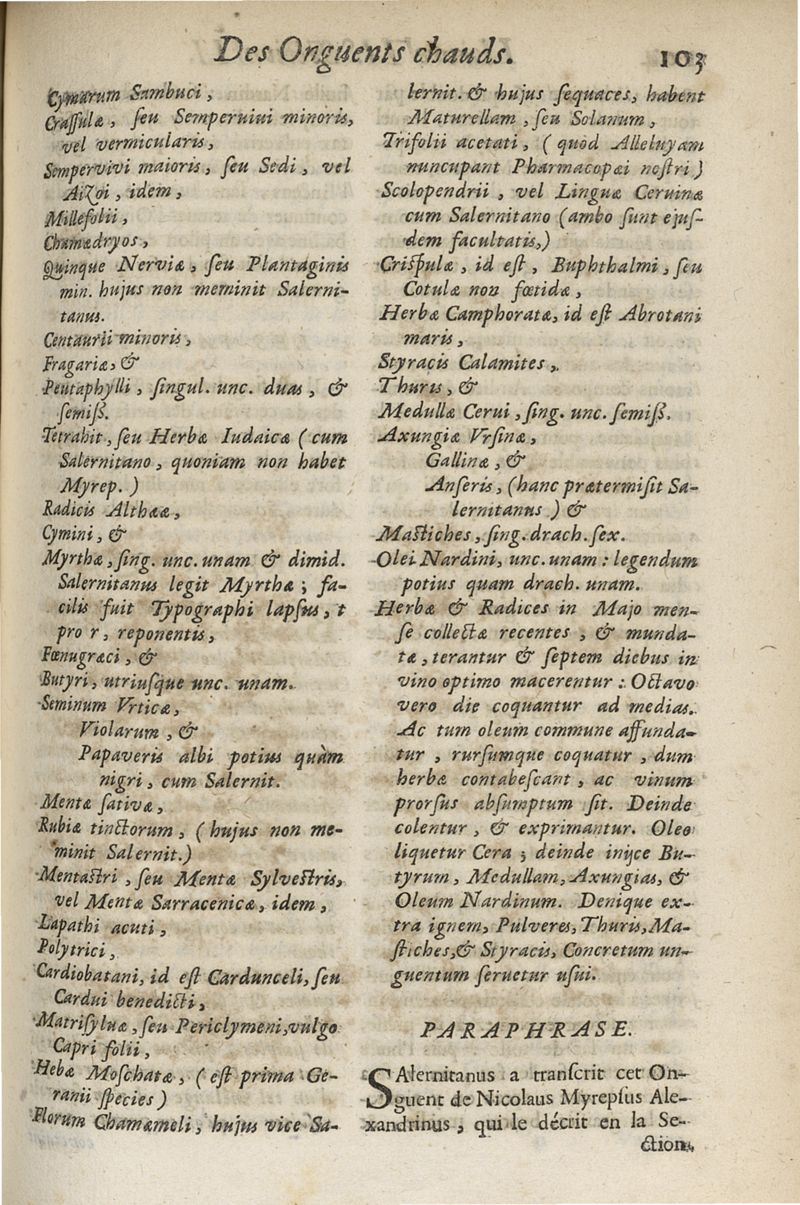 Des Onguents chauds. 103
Cymarum Sambuci,
Crassulæ, seu Semperuiui minoris,
vel vermicularis,
Sempervivi maioris, seu Sedi, vel
Aizoi, idem,
Millefolii,
Chamædryos,
Quinque Nerviæ, seu Plantaginis
min. hujus non meminit Salerni-
tanus.
Centaurii minoris,
Fragariæ, &
Pentaphylli, singul. unc. duas, &
semiß.
Tetrahit, seu Herbæ Iudaicæ (cum
Salernitano, quoniam non habet
Myrep.)
Radicis Althææ,
Cymini, &
Myrthæ, sing. unc. unam & dimid.
Salernitanus legit Myrthæ; fa-
cilis fuit Typographi lapsus, t
pro r, reponentis,
Fœnugræci, &
Butyri, utriusque unc. unam.
Seminum Vrticæ,
Violarum, &
Papaveris albi potius quàm
nigri, cum Salernit.
Mentæ sativæ,
Rubiæ tinctorum, (hujus non me-
minit Salernit.)
Mentastri, seu Mentæ Sylvestris,
vel Mentæ Sarracenicæ, idem,
Lapathi acuti,
Polytrici,
Cardiobatani, id est Cardunceli, seu
Cardui benedicti,
Matrisyluæ, seu Periclymeni, vulgo
Capri folii,
Hebæ Moschatæ, (est prima Ge-
ranii species)
Florum Chamæmeli, hujus vice Sa-
lernit. & hujus sequaces, habent
Maturellam, seu Solanum,
Trifolii acetati, (quòd Alleluyam
nuncupant Pharmacopæi nostri)
Scolopendrii, vel Linguæ Ceruinæ
cum Salernitano (ambo sunt ejus-
dem facultatis,)
Crispulæ, id est, Buphthalmi, seu
Cotulæ non fœtidæ,
Herbæ Camphoratæ, id est Abrotani
maris,
Styracis Calamites,
Thuris, &
Medullæ Cerui, sing. unc. semiß.
Axungiæ Vrsinæ,
Gallinæ, &
Anseris, (hanc prætermisit Sa-
lernitanus) &
Mastiches, sing. drach. sex.
Olei Nardini, unc. unam: legendum
potius quam drach. unam.
Herbæ & Radices in Majo men-
se collectæ recentes, & munda-
tæ, terantur & septem diebus in
vino optimo macerentur: Octavo
vero die coquantur ad medias.
Ac tum oleum commune affunda-
tur, rursumque coquatur, dum
herbæ contabescant, ac vinum
prorsus absumptum sit. Deinde
colentur, & exprimantur. Oleo
liquetur Cera; deinde inijce Bu-
tyrum, Medullam, Axungias, &
Oleum Nardinum. Denique ex-
tra ignem, Pulveres, Thuris, Ma-
stiches, & Styracis, Concretum un-
guentum seruetur usui.
PARAPHRASE.
SAlernitanus a transcrit cet On-
guent de Nicolaus Myrepsus Ale-
xandrinus, qui le décrit en la Se-
ction,